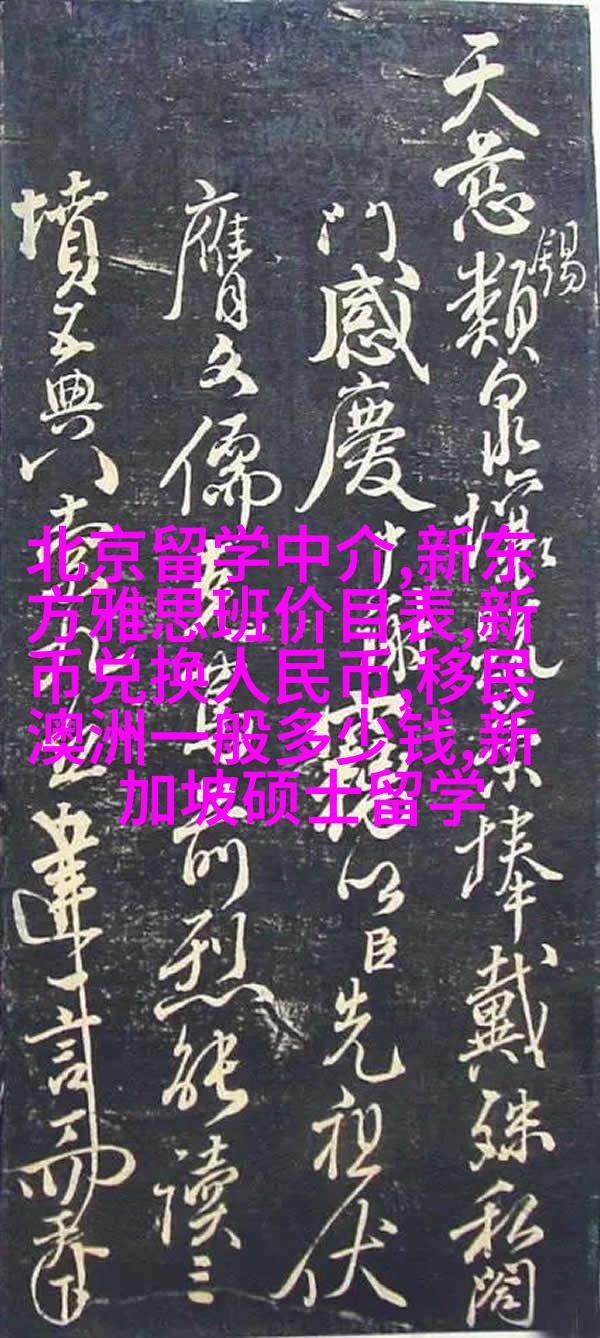 天慈錫類泉捧戴殊私闔
門感慶以臣先祖伏
膺文儒前烈能讀三
墳五典八言
北京留学中介,新东
方雅思班价目表,新
币兑换人民币,移民
澳洲一般多少钱,新
加坡硕士留学